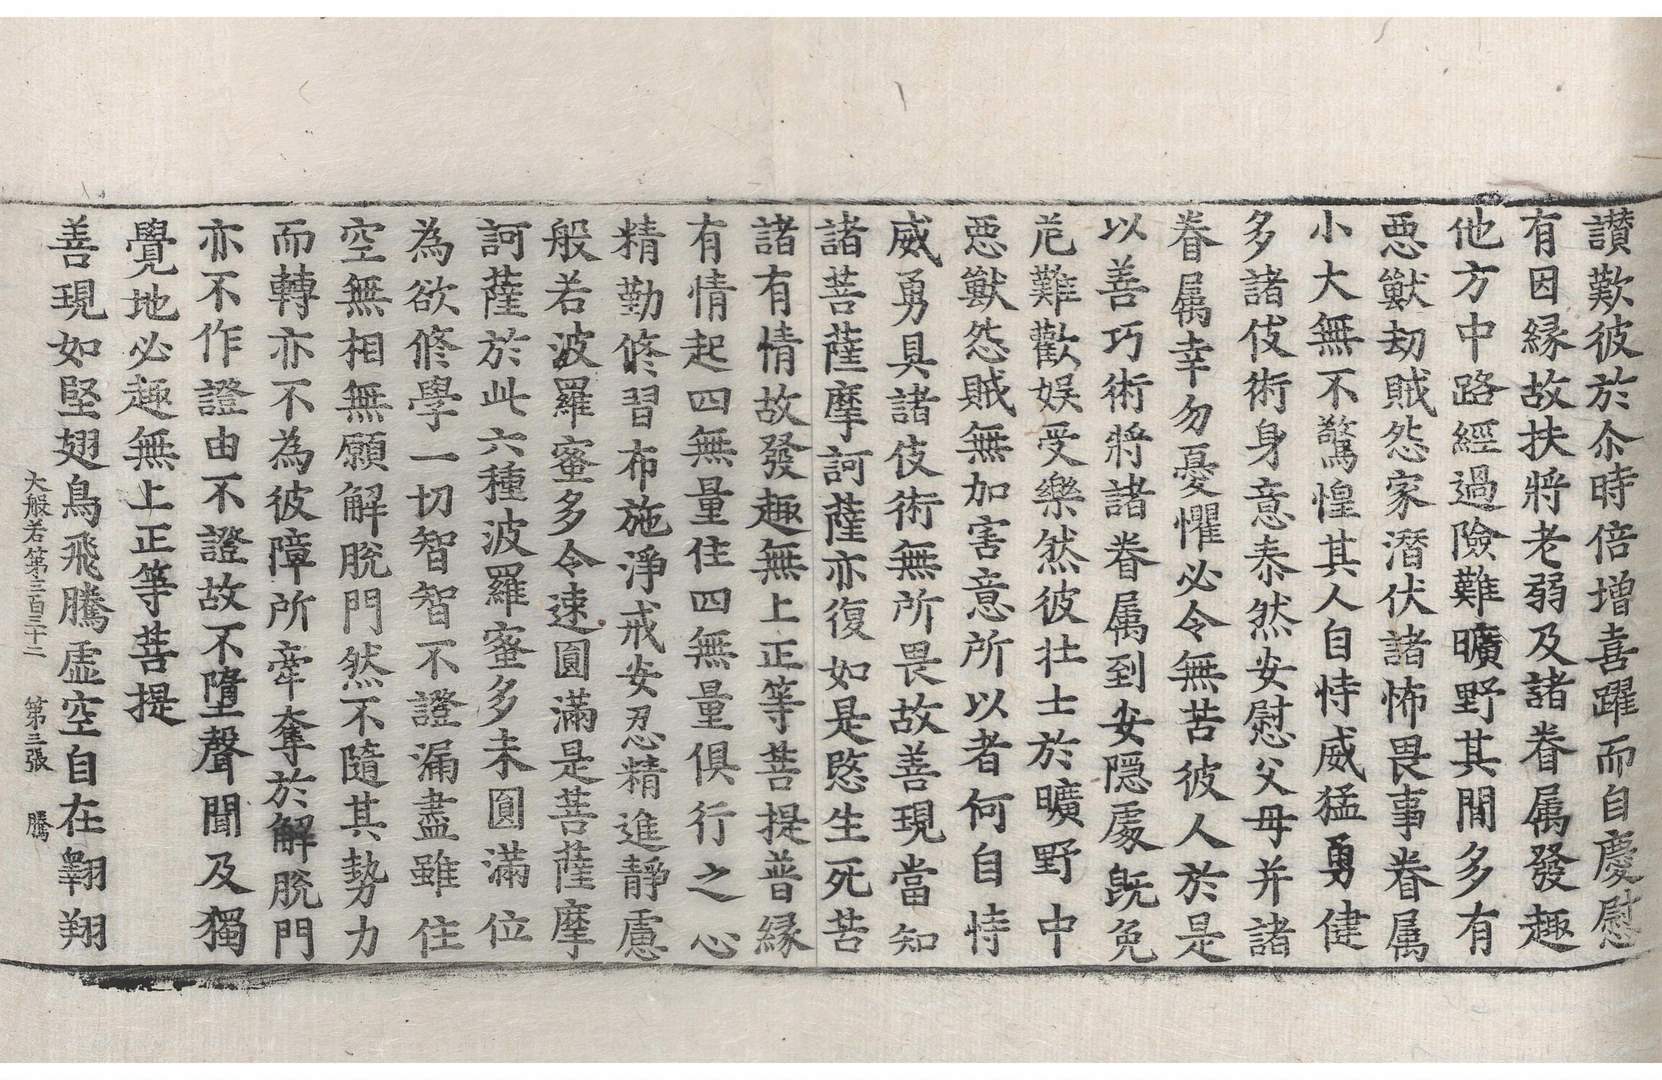 讃歎彼於尒時倍增喜躍而自慶慰
有因緣故扶將老弱及諸眷属發趣
他方中路經過險難曠野其間多有
惡獸劫賊怨家潛伏諸怖畏事眷属
小大無不驚惶其人自恃威猛勇健
多諸伎術身意泰然安慰父母并諸
眷属幸勿憂懼必令無苦彼人於是
以善巧術將諸眷属到安隱處既免
危難歡娛受樂然彼壯士於曠野中
惡獸怨賊無加害意所以者何自恃
威勇具諸伎術無所畏故善現當知
諸菩薩摩訶薩亦復如是愍生死苦
諸有情故發趣無上正等菩提普緣
有情起四無量住四無量俱行之心
精勤修習布施淨戒安忍精進靜慮
般若波羅蜜多令速圓滿是菩薩摩
訶薩於此六種波羅蜜多未圓滿位
為欲修學一切智智不證漏盡雖住
空無相無願解脫門然不隨其勢力
而轉亦不為彼障所牽奪於解脫門
亦不作證由不證故不墮聲聞及獨
覺地必趣無上正等菩提
善現如堅翅鳥飛騰虛空自在翱翔
大般若第三百三十二 第三張 騰